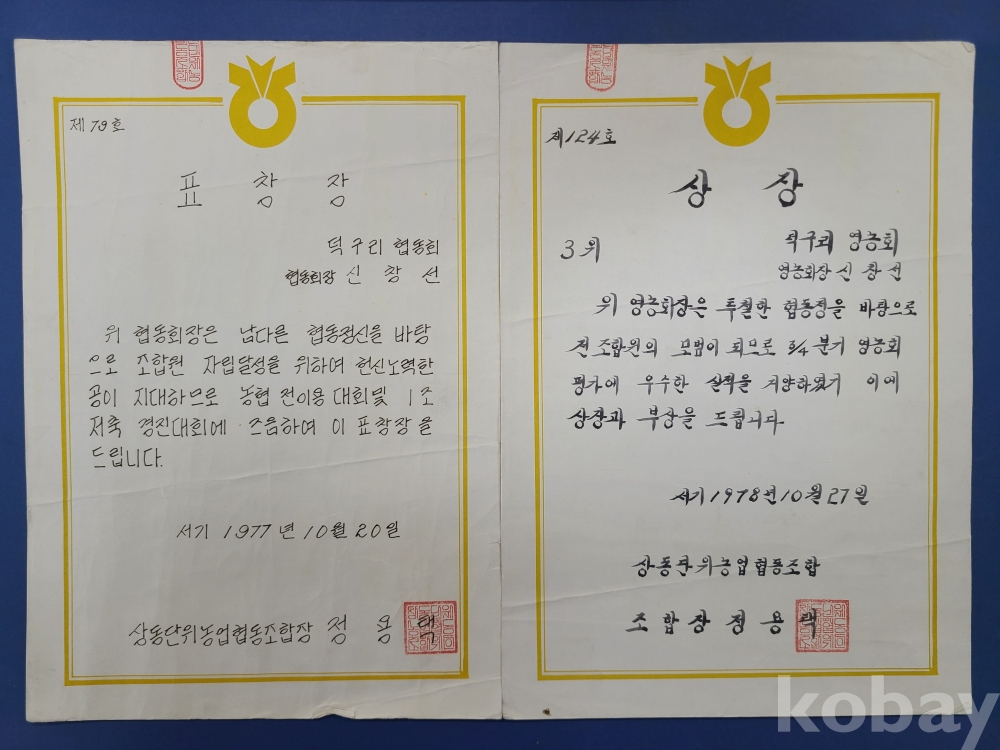 제 79 호
표 창 장
덕구리 협동회
협동회장 신 창 선
위 협동회장은 남다른 협동정신을 바탕
으로 조합원 자립달성을 위하여 헌신노력한
공이 지대하므로 농협 전이용 대회및 1조
저축 경진대회에 즈음하여 이 표창장 을
드립니다.
서기 1977 년 10월 20일
상동단위농업협동조합장 정 용 택
제124호
상 장
3 위
덕구리 영농회
영농회장 신 창 선
위 영농회장은 투철한 협동정을 바탕으로
전 조합원의 모범이 되므로 3/4 분기 영농회
평가에 우수한 실적을 거양하였기 이에
상장과 부장을 드립니다.
서기 1978년 10월 27일
상동단위농업협동조합
조 합 장 정 용 택
kobay